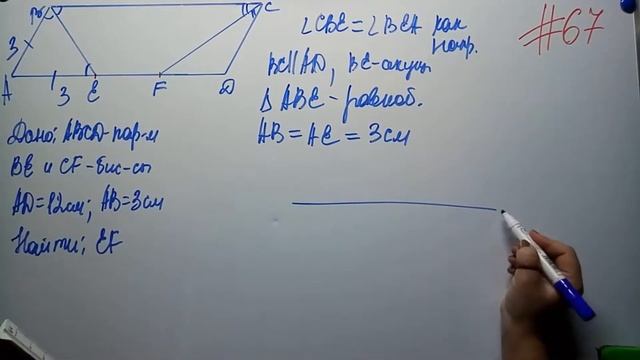 B
C
3
A
3
E
F
D
Дано: ABCD-пар-м
BE и CF-бис-сы
AD=12см; AB=3см
Найти; EF
∠CBE=∠BEA как
напр.
BC||AD, BE-секущ
△ABE-равноб.
AB=AE=3см
#67